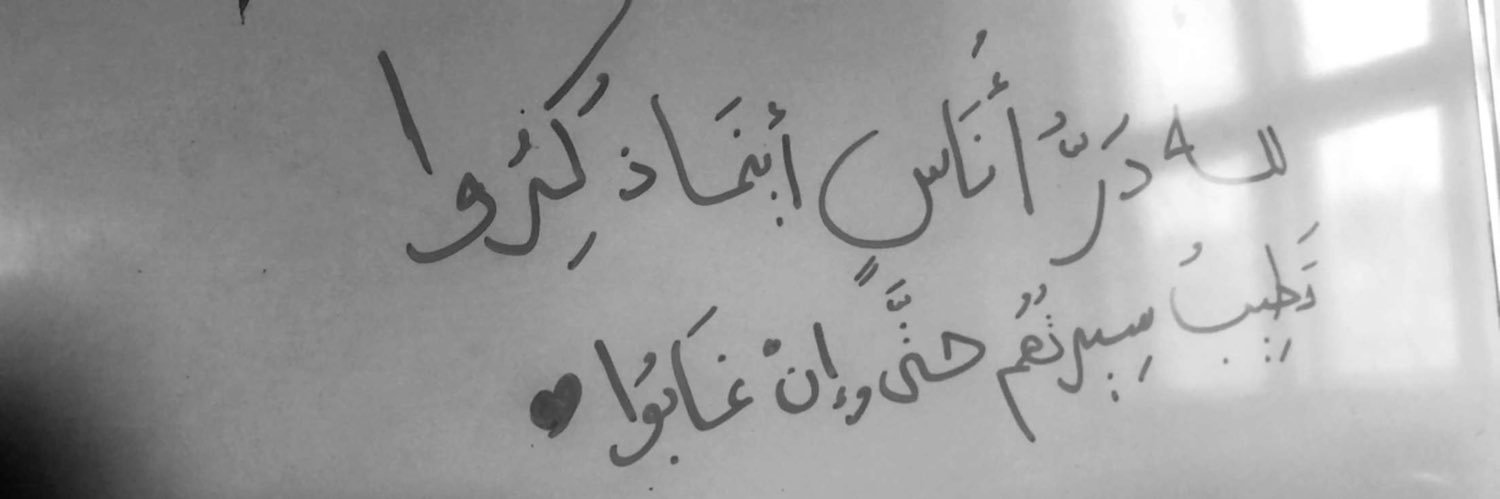 لله دَرُّ أُنَاسٍ أينَمَا ذُكِرُوا
تَطِيبُ سِيرتُهُم حتَّى وإنْ غَابُوا ♥